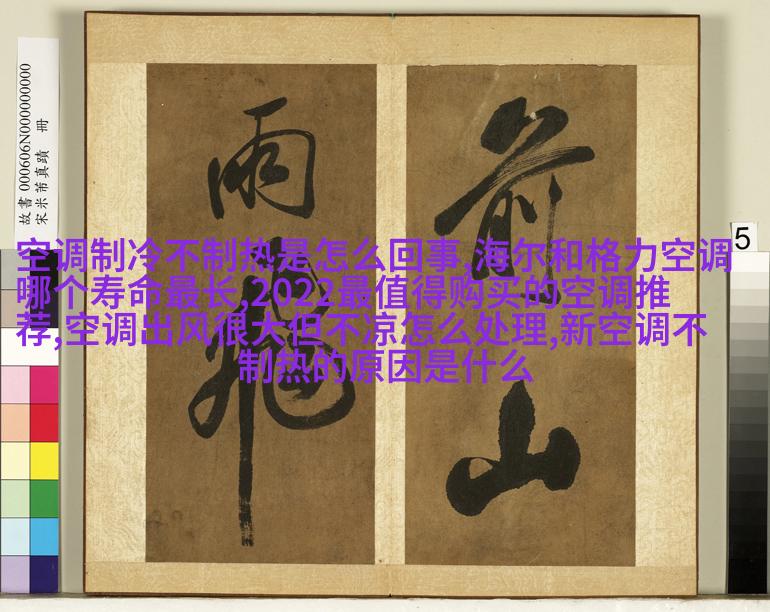 故書 000606N000000000
宋米芾真蹟　冊
前山
雨飛
5
空调制冷不制热是怎么回事,海尔和格力空调
哪个寿命最长,2022最值得购买的空调推
荐,空调出风很大但不凉怎么处理,新空调不
制热的原因是什么